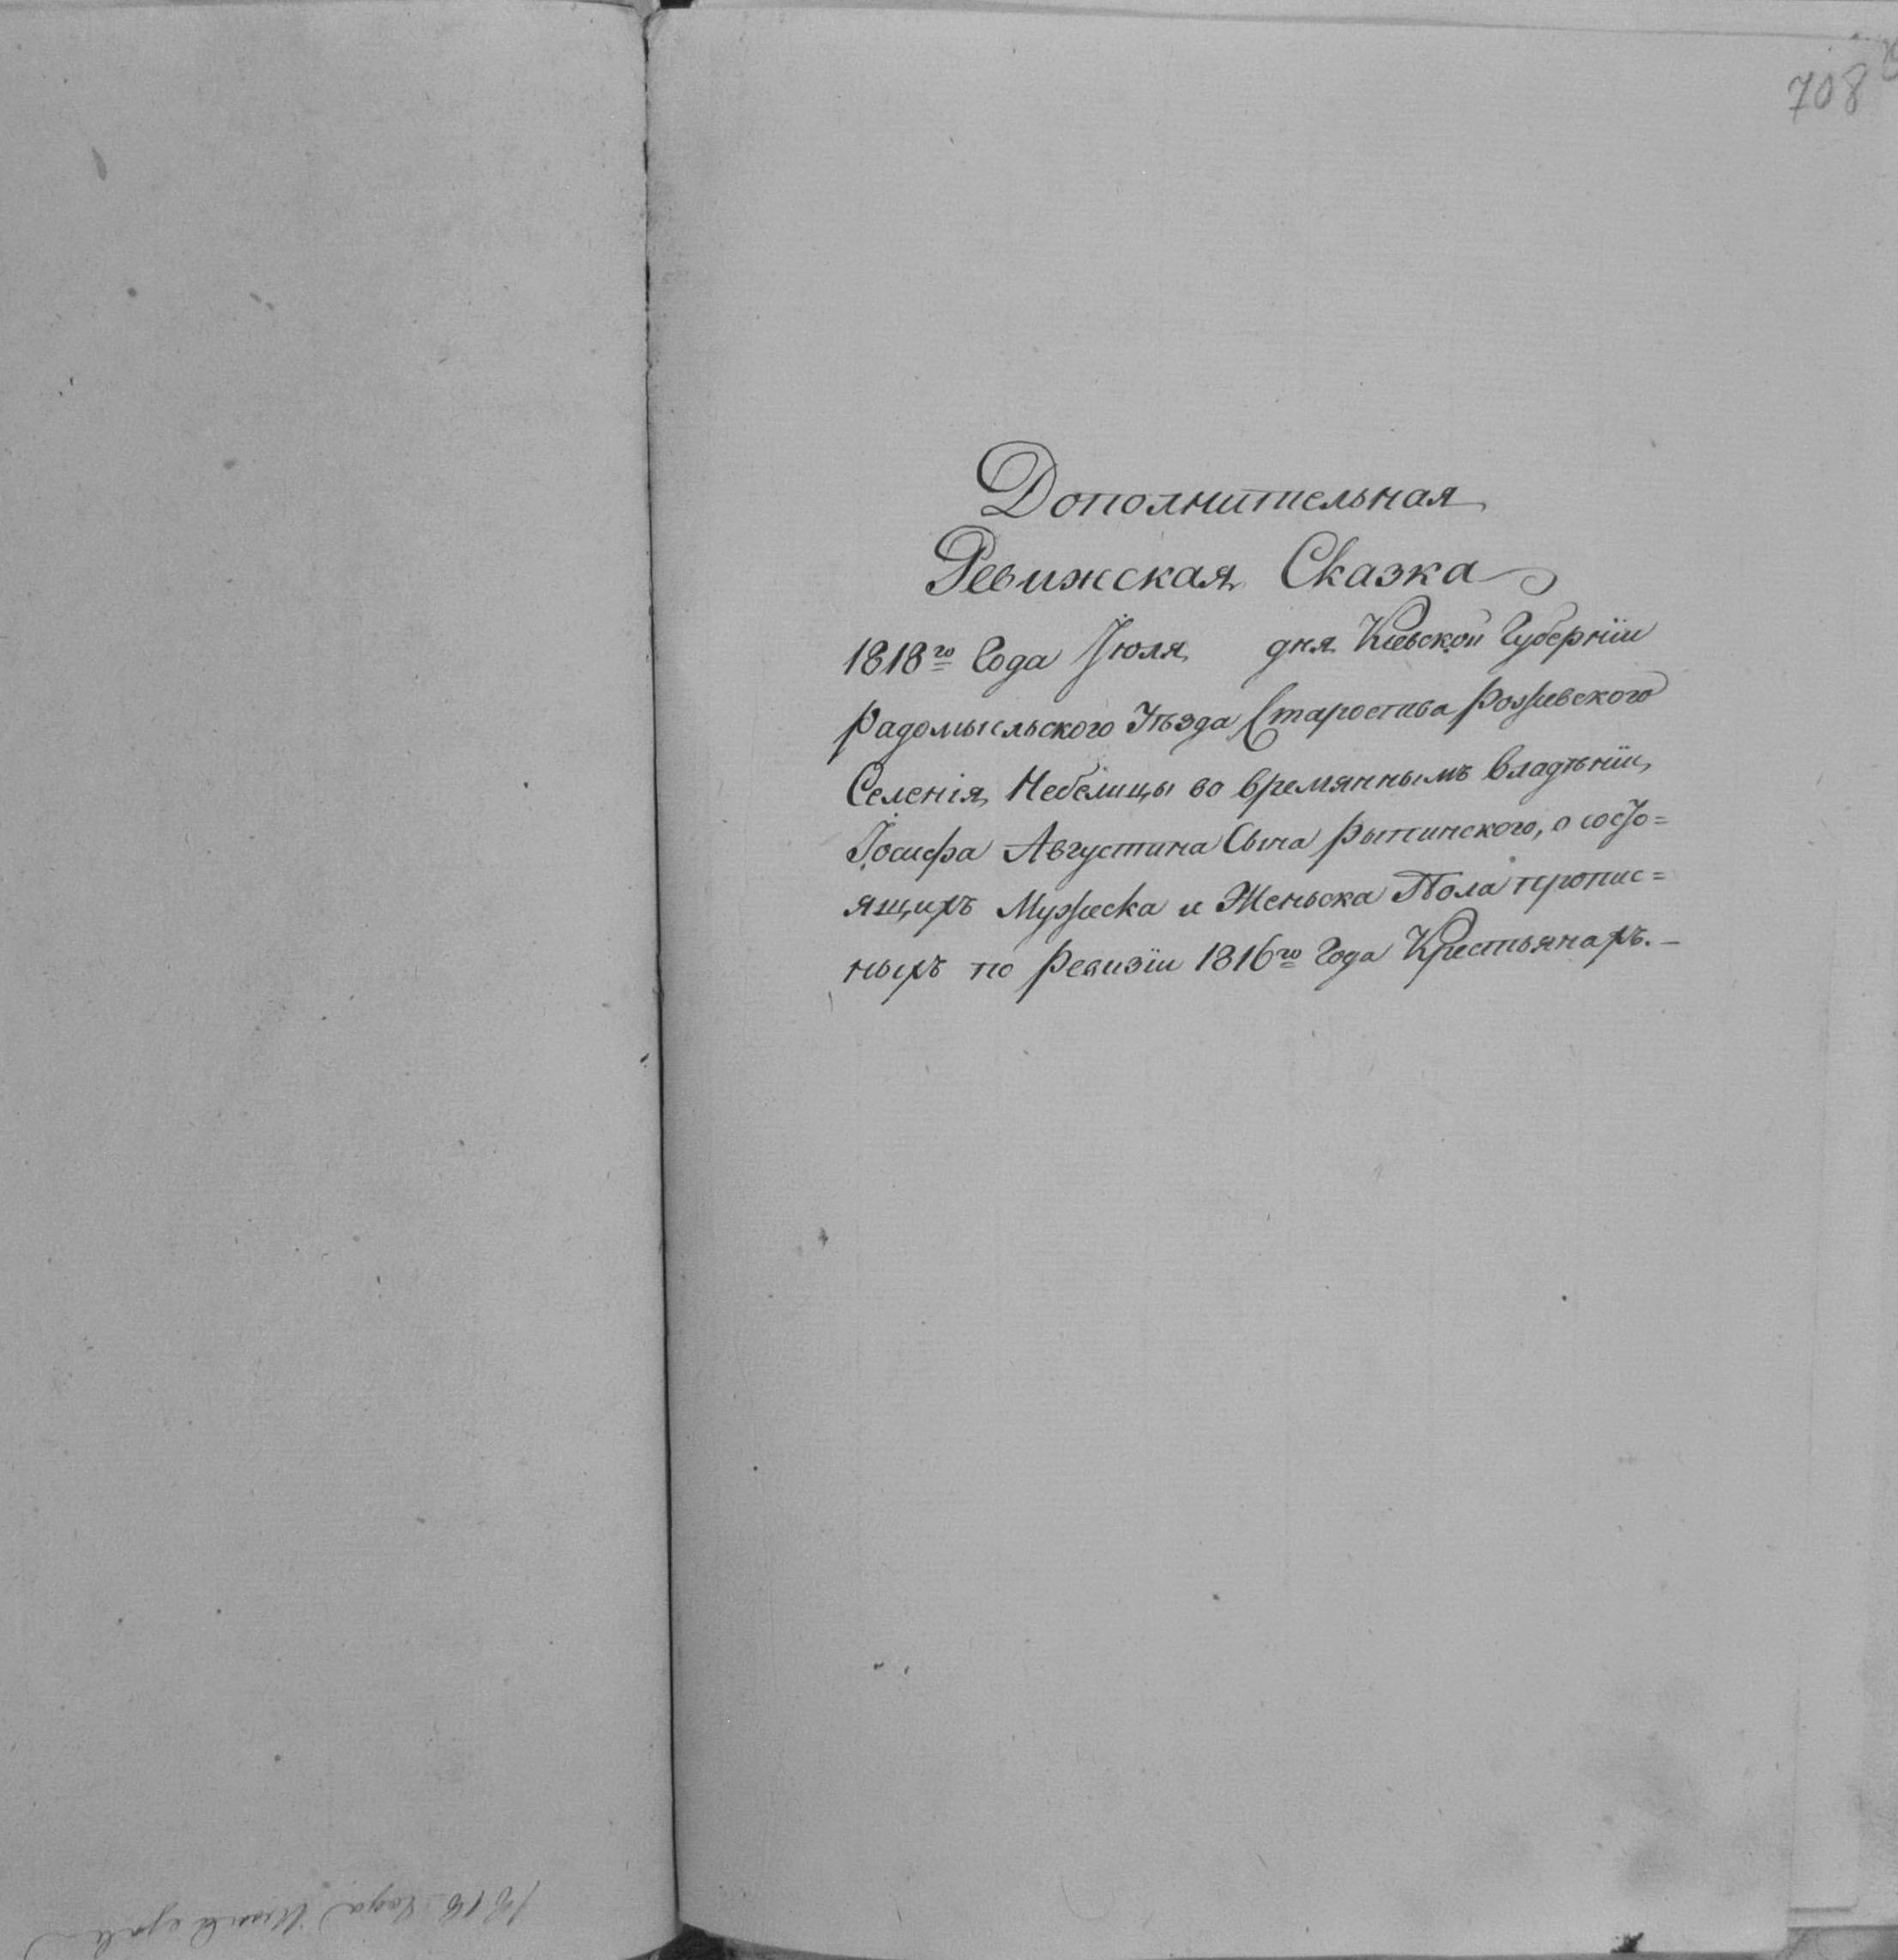 708
Дополнительная
Ревижская Сказка
1818го Года Июля дня Киевской Губернїи
Радомысльского Уѣзда Староства Рожевского
Селенія Небелицы во времянным владѣнїи
Іосифа Августина Сына Рытинского, о состо=
ящихъ Мужеска и Женьска Пола пропис=
ныхъ по Ревизїи 1816го Года Крестьянахъ.—